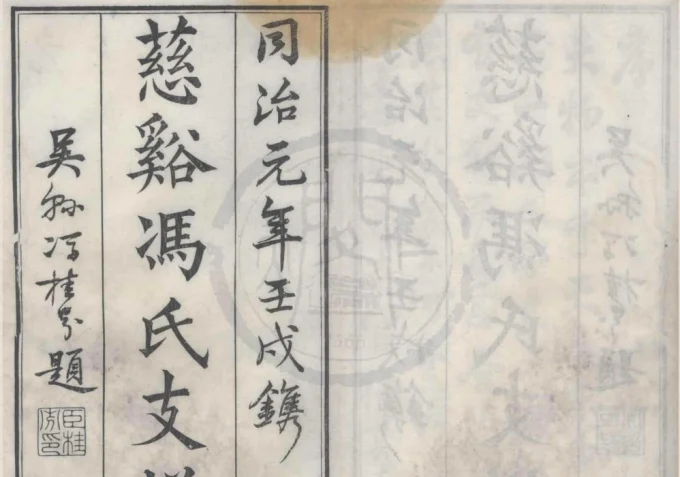 同治元年壬戌鐫
慈谿馮氏支
吴縣馮桂芬題
臣桂